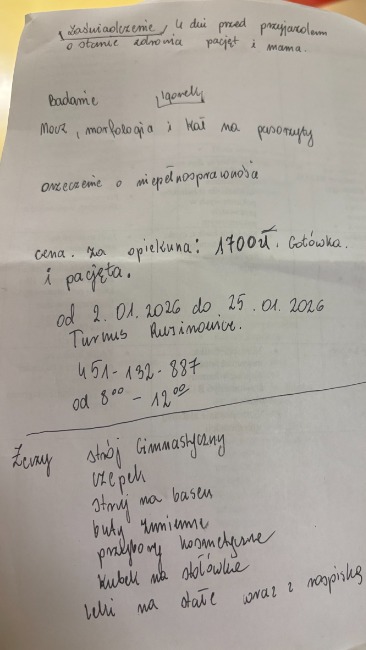 Zaświadczenie, 4 dni przed przyjazdem
o stanie zdrowia pacjęt i mama.
Badanie Igorek
Mocz, morfologia i kał na pasorzyty
orzeczenie o niepełnosprawnośia
cena. za opiekuna: 1700zł. Gotówka.
i pacjęta.
od 2.01.2026 do 25.01.2026
Turnus
451-132-887
od 8⁰⁰ - 12⁰⁰
Żeczy strój Gimnastyczny
czepek
struj na basen
buty zmienne
przybory kosmetyczne
kubek na stołówke
Leki na stałe wraz z rospiską